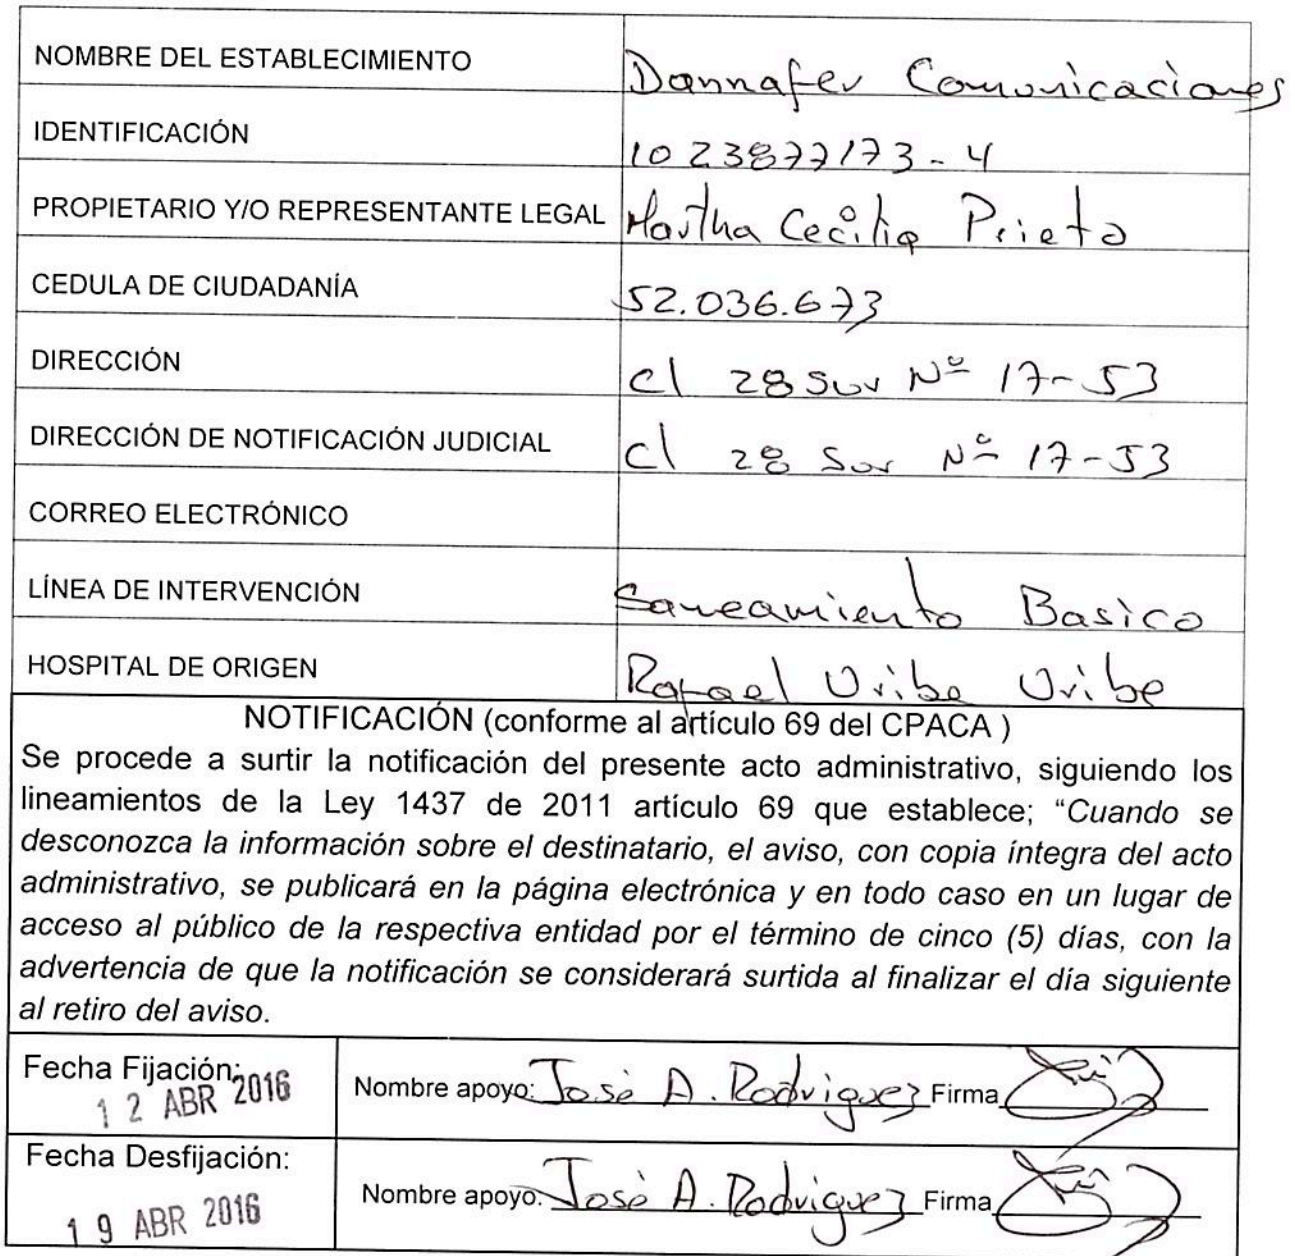 NOMBRE DEL ESTABLECIMIENTO Dannafer Comunicaciones
IDENTIFICACIÓN 1023877173-4
PROPIETARIO Y/O REPRESENTANTE LEGAL Martha Cecilia Prieto
CEDULA DE CIUDADANÍA 52.036.673
DIRECCIÓN cl 28 Sur Nº 17-53
DIRECCIÓN DE NOTIFICACIÓN JUDICIAL cl 28 Sur Nº 17-53
CORREO ELECTRÓNICO
LÍNEA DE INTERVENCIÓN Saneamiento Basico
HOSPITAL DE ORIGEN Rafael Uribe Uribe
NOTIFICACIÓN (conforme al artículo 69 del CPACA )
Se procede a surtir la notificación del presente acto administrativo, siguiendo los
lineamientos de la Ley 1437 de 2011 artículo 69 que establece; “Cuando se
desconozca la información sobre el destinatario, el aviso, con copia íntegra del acto
administrativo, se publicará en la página electrónica y en todo caso en un lugar de
acceso al público de la respectiva entidad por el término de cinco (5) días, con la
advertencia de que la notificación se considerará surtida al finalizar el día siguiente
al retiro del aviso.
Fecha Fijación:
12 ABR 2016
Nombre apoyo: José A. Rodriguez Firma
Fecha Desfijación:
19 ABR 2016
Nombre apoyo: José A. Rodriguez Firma